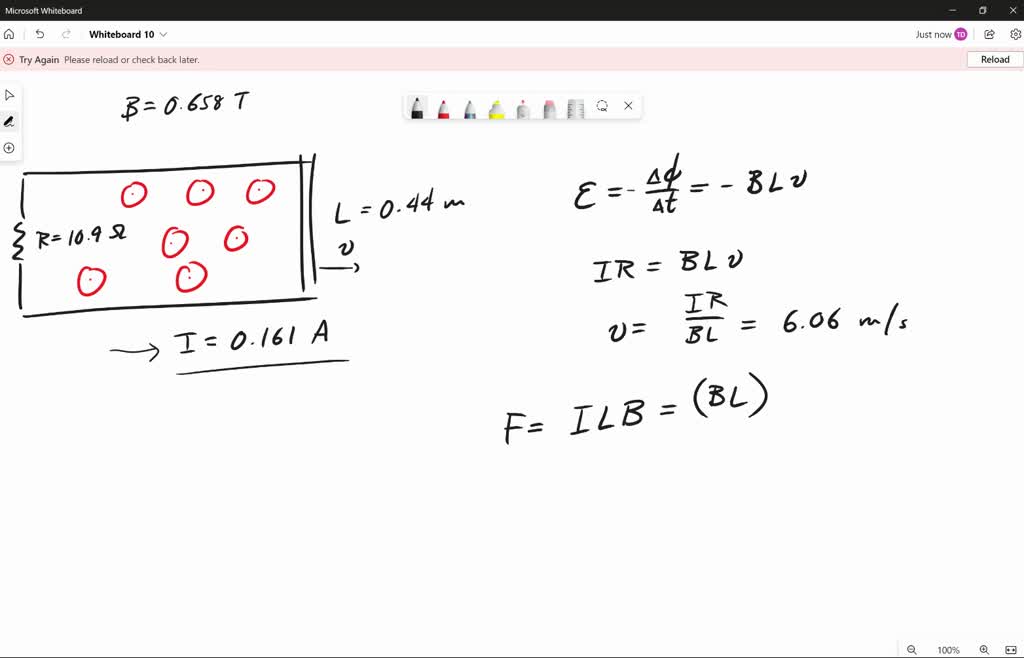 Microsoft Whiteboard
Whiteboard 10
Just now TD
Try Again Please reload or check back later.
Reload
B = 0.658 T
R = 10.9 Ω
L = 0.44 m
v
→ I = 0.161 A
ε = - Δϕ/Δt = - BLv
IR = BLv
v = IR/BL = 6.06 m/s
F = ILB = (BL)
100%